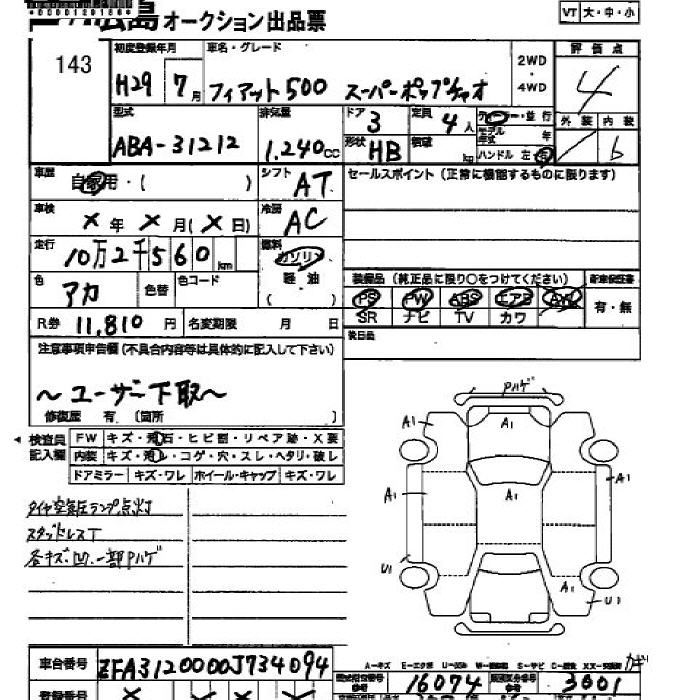 広島オークション出品票
VT 大・中・小
143
初度登録年月 車名・グレード 2WD ・ 4WD 評価点
H29 7月 フィアット500 スーパーポップチャオ 4
型式 排気量 ドア 3 定員 4人 ディーラー・並行 外装 内装
ABA-31212 1,240cc 形状 HB 積載 kg モデル年式 年 ハンドル 左・右 b
車歴 自家用・( ) シフト AT セールスポイント(正常に機能するものに限ります)
車検 ×年 ×月(×日) 冷房 AC
走行 10万2千560km 燃料 ガソリン 軽油 ( )
色 アカ 色替 色コード
装備品(純正品に限り○をつけてください) 新車保証書
PS PW ABS エアB AW 有・無
SR ナビ TV カワ
R券 11,810円 名変期限 月 日 後日品
注意事項申告欄(不具合内容等は具体的に記入して下さい)
~ユーザー下取~
修復歴 有 (箇所 )
検査員記入欄 FW キズ・飛石・ヒビ割・リペア跡・X要
内装 キズ・汚レ・コゲ・穴・スレ・ヘタリ・破レ
ドアミラー キズ・ワレ ホイール・キャップ キズ・ワレ
タイヤ空気圧ランプ点灯
スタッドレスT
各キズ.凹.一部Pハゲ
Pハゲ
A1 A1
A1 A1 A1
U1 A1 U1
A-キズ E-エクボ U-凹み S-サビ
車台番号 ZFA3120000J734094
16074 3001
登録番号